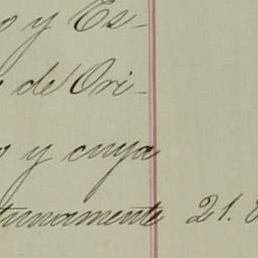 y Es-
de Ori-
y cuya
tunamente 21.